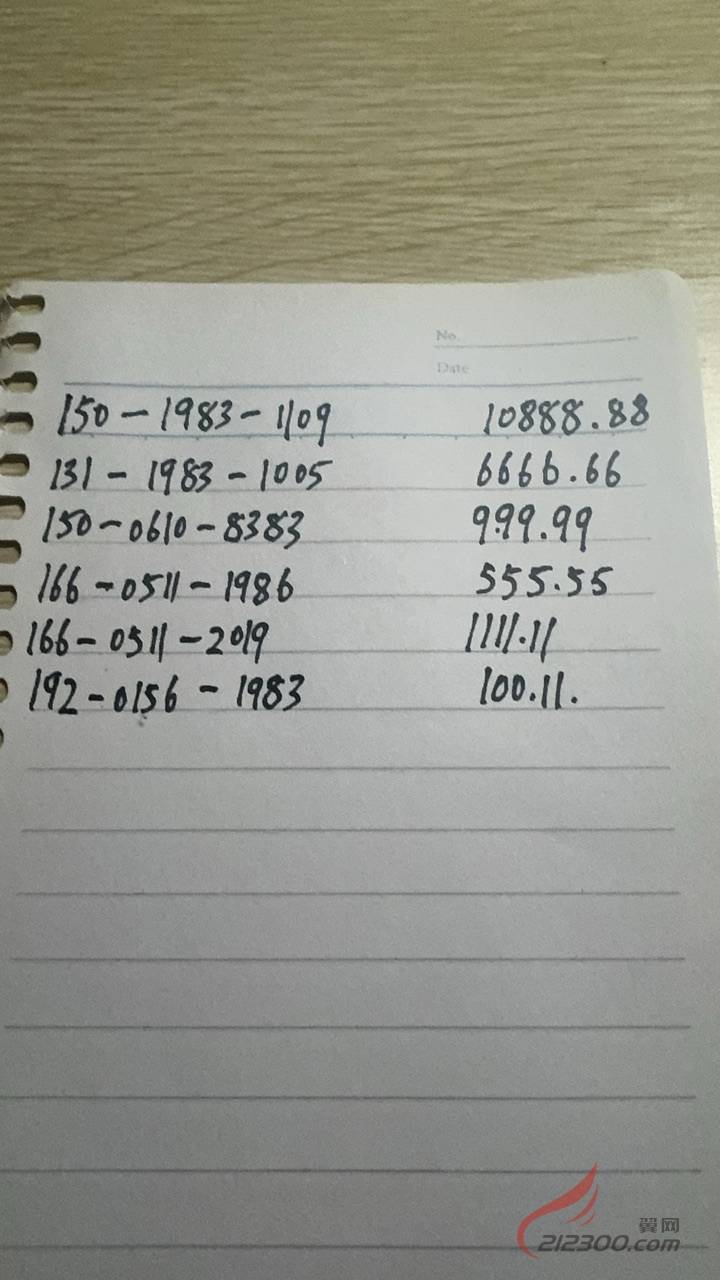 No.
Date
150-1983-1109 10888.88
131-1983-1005 6666.66
150-0610-8383 999.99
166-0511-1986 555.55
166-0511-2019 1111.11
192-0156-1983 100.11.
翼网
212300.com